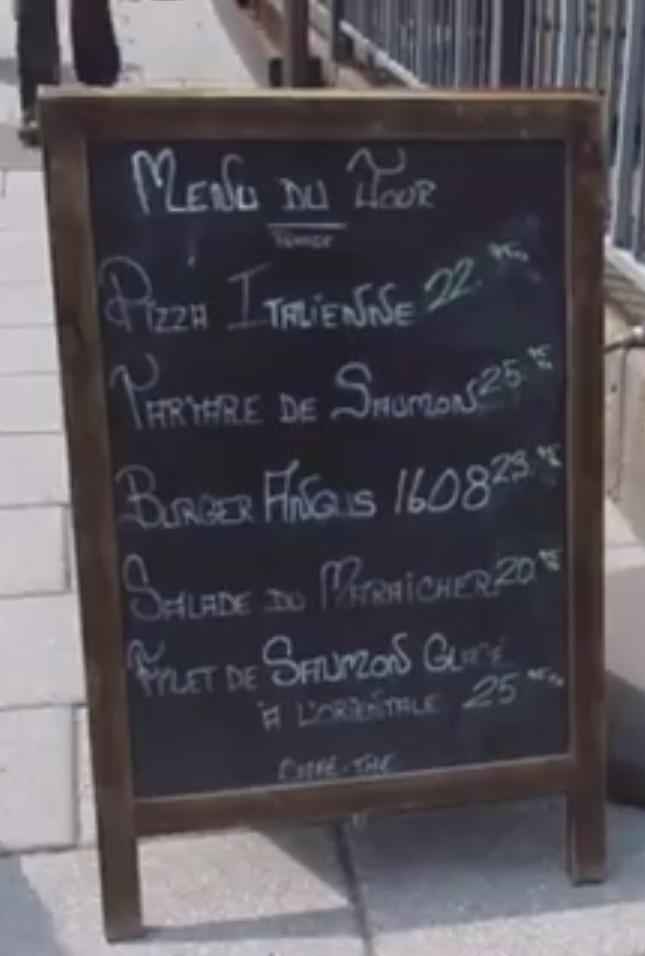 Menu du Jour
Pizza Italienne 22.
Tartare de Saumon 25.
Burger Angus 1608 23.
Salade du Maraîcher 20.
Filet de Saumon Glacé
à l'orientale 25
Café-Thé